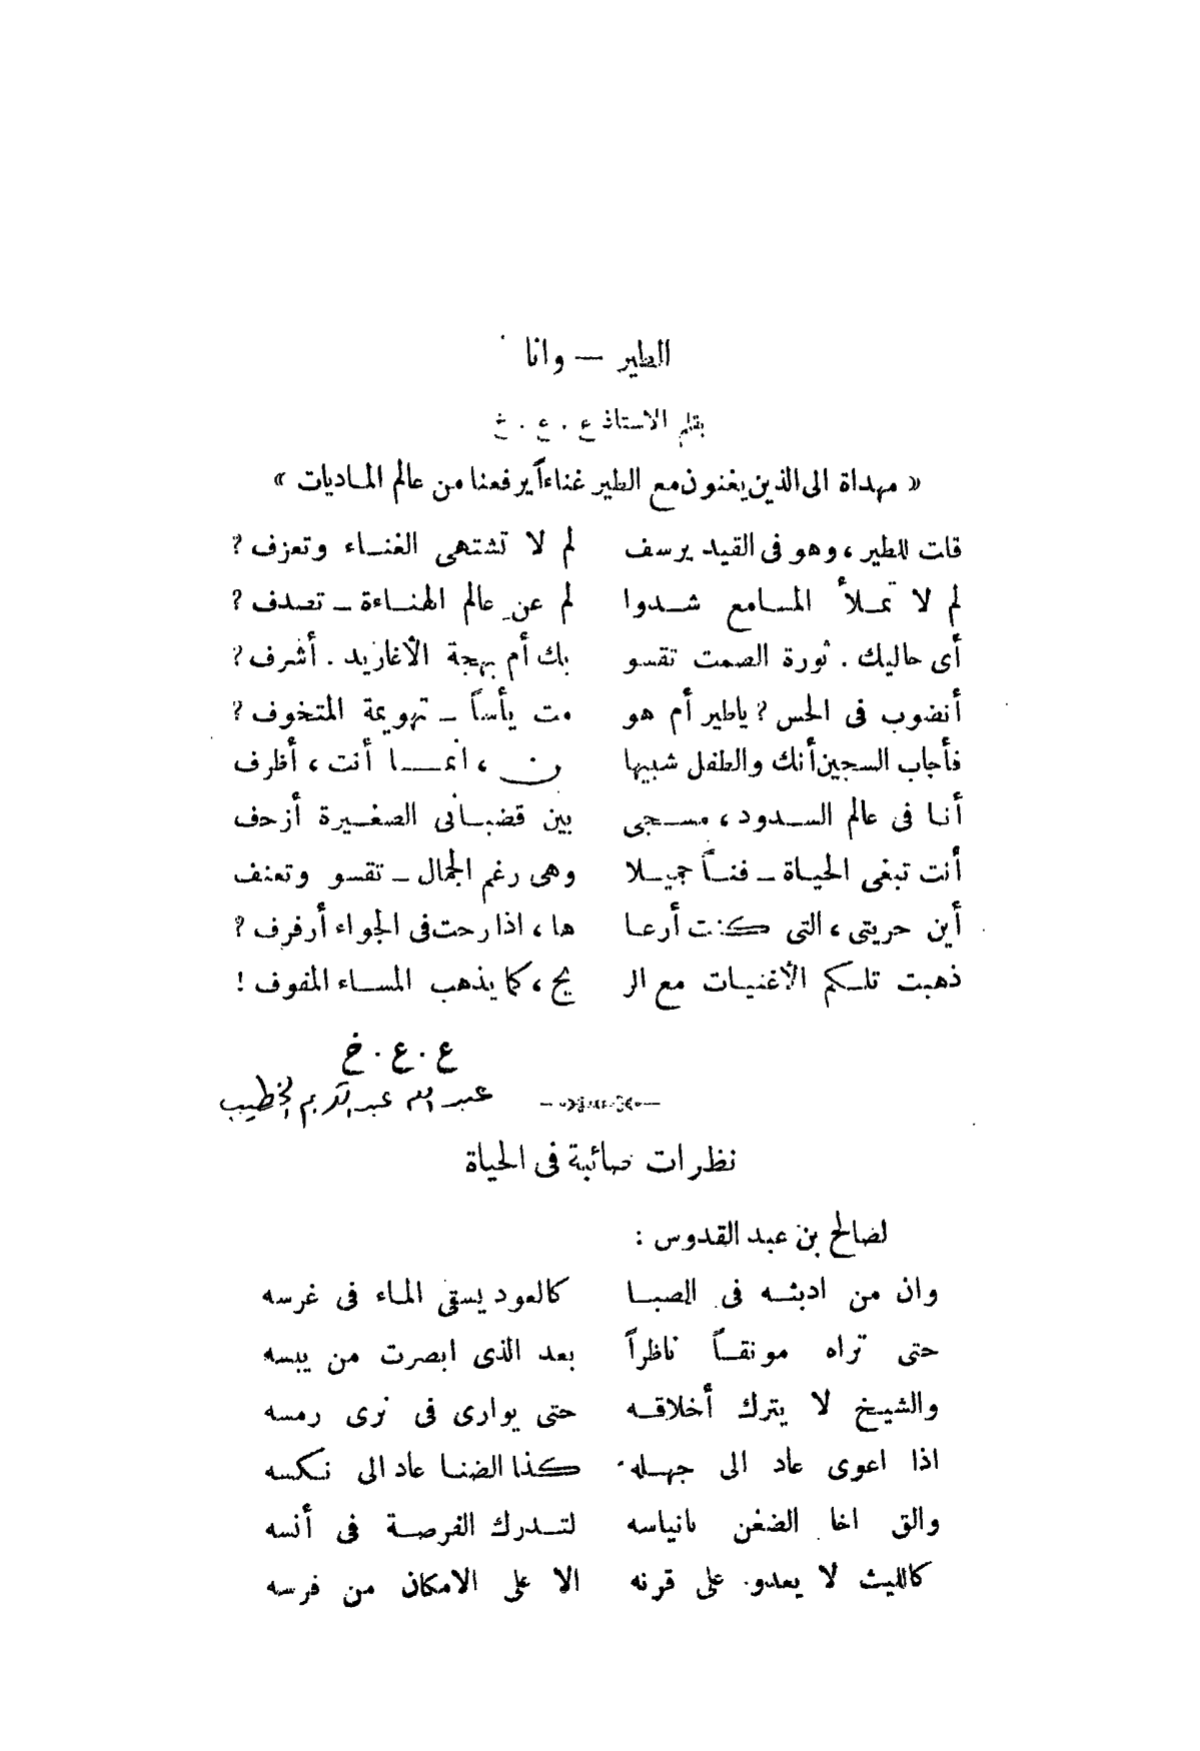 الطير — وانا
بقلم الاستاذ ع . ع . خ
« مهداة الى الذين يغنون مع الطير غناءاً يرفعنا من عالم الماديات »
قلت للطير ، وهو فى القيد يرسف لم لا تشتهى الغناء وتعزف ؟
لم لا تملأ المسامع شدوا لم عن عالم الهناءة ـ تصدف ؟
أى حاليك . ثورة الصمت تقسو بك أم بهجة الأغاريد . أشرف ؟
أنضوب فى الحس ؟ ياطير أم هو مت يأساً ـ تهويمة المتخوف ؟
فأجاب السجين أنك والطفل شبيها ن ، انمـا أنت ، أظرف
أنا فى عالم السدود ، مسجى بين قضبانى الصغيرة أزحف
أنت تبغى الحياة ـ فناً جميلا وهى رغم الجمال ـ تقسو وتعنف
أين حريتى ، التى كنت أرعا ها ، اذا رحت فى الجواء أرفرف ؟
ذهبت تلكم الأغنيات مع الر يح ، كما يذهب المساء المفوف !
ع . ع . خ
عبد الله عبد الكريم الخطيب
نظرات صائبة فى الحياة
لصالح بن عبد القدوس :
وان من ادبته فى الصبا كالعود يسقى الماء فى غرسه
حتى تراه مونقاً ناظراً بعد الذى ابصرت من يبسه
والشيخ لا يترك أخلاقه حتى يوارى فى ثرى رمسه
اذا اعوى عاد الى جهله كذا الضنا عاد الى نكسه
والق اخا الضغن بانياسه لتدرك الفرصة فى أنسه
كالليث لا يعدو على قرنه الا على الامكان من فرسه